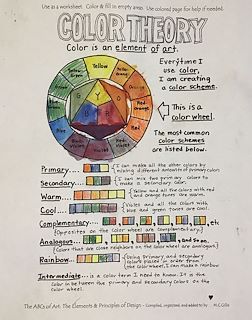 Use as a worksheet. Color & fill in empty areas. Use colored page for help if needed.
COLOR THEORY
Color is an element of art.
Everytime I
use color,
I am creating
a color scheme.
Yellow
Yellow Orange
Orange
Red-Orange
Red
Red-Violet
Violet
Blue
Blue Green
Green
Yellow Green
Y
O
R
V
B
G
This is a
color wheel.
The most common
color schemes
are listed below.
Primary.... I can make all the other colors by
mixing different amounts of primary colors
Secondary... I can mix two primary colors to
make a Secondary Color.
Warm.... Yellow and all the colors with red
and orange tones are warm.
Cool.... Violet and all the colors with
blue and green tones are cool.
Complementary... etc
(Opposites on the Color Wheel are Complementary)
Analogous... and so on.
(Colors that are close neighbors on the color wheel are analogous)
Rainbow... Using primary and secondary
colors placed in order from
the Color Wheel, I can make a rainbow
Intermediate... is a color term I need to know. It is the
color in between the primary and Secondary Colors on the
color wheel.
The ABCs of Art: The Elements & Principles of Design - Compiled, organized, and added to by M.C.Gillis